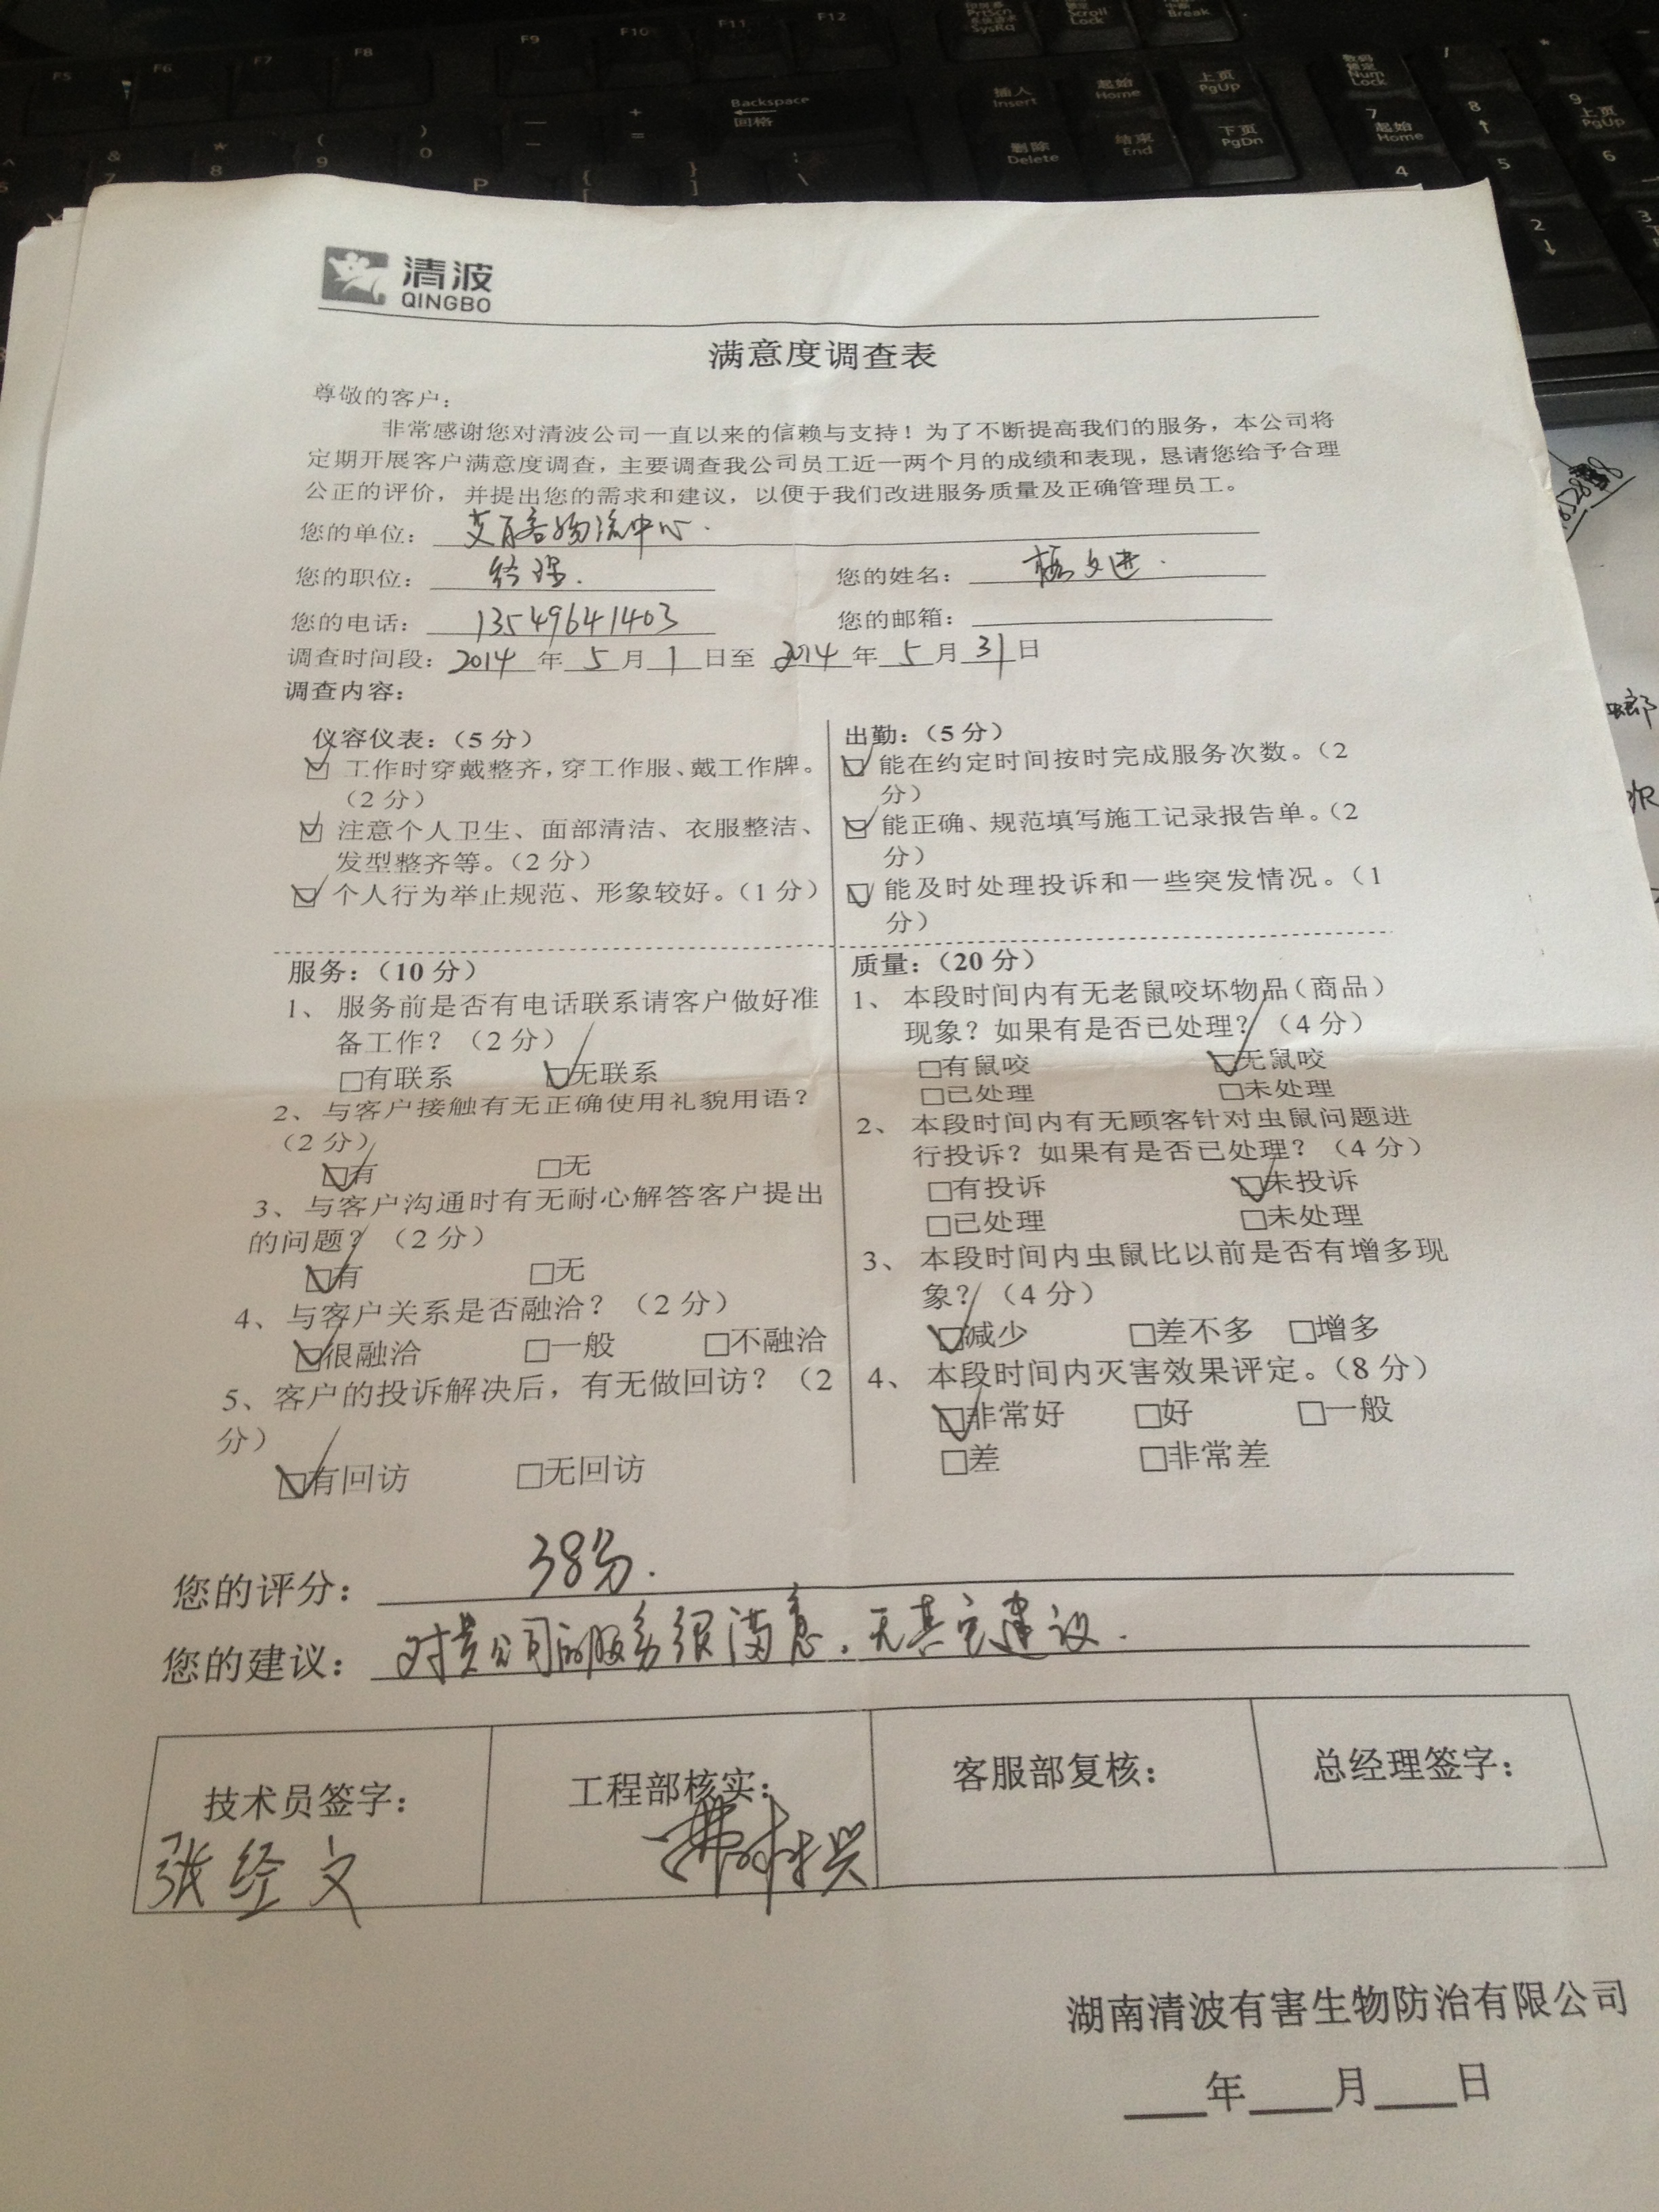 清波
QINGBO
满意度调查表
尊敬的客户：
非常感谢您对清波公司一直以来的信赖与支持！为了不断提高我们的服务，本公司将
定期开展客户满意度调查，主要调查我公司员工近一两个月的成绩和表现，恳请您给予合理
公正的评价，并提出您的需求和建议，以便于我们改进服务质量及正确管理员工。
您的单位： 物流中心.
您的职位： 经理. 您的姓名： 文进.
您的电话： 13549641403 您的邮箱：
调查时间段：2014 年 5 月 1 日至 2014 年 5 月 31 日
调查内容：
仪容仪表：（5 分）
☑ 工作时穿戴整齐，穿工作服、戴工作牌。
（2 分）
☑ 注意个人卫生、面部清洁、衣服整洁、
发型整齐等。（2 分）
☑ 个人行为举止规范、形象较好。（1 分）
出勤：（5 分）
☑ 能在约定时间按时完成服务次数。（2
分）
☑ 能正确、规范填写施工记录报告单。（2
分）
☑ 能及时处理投诉和一些突发情况。（1
分）
服务：（10 分）
1、 服务前是否有电话联系请客户做好准
备工作？（2 分）
□有联系 ☑无联系
2、与客户接触有无正确使用礼貌用语？
（2 分）
☑有 □无
3、与客户沟通时有无耐心解答客户提出
的问题？（2 分）
☑有 □无
4、与客户关系是否融洽？（2 分）
☑很融洽 □一般 □不融洽
5、客户的投诉解决后，有无做回访？（2
分）
☑有回访 □无回访
质量：（20 分）
1、 本段时间内有无老鼠咬坏物品（商品）
现象？如果有是否已处理？（4 分）
□有鼠咬 ☑无鼠咬
□已处理 □未处理
2、 本段时间内有无顾客针对虫鼠问题进
行投诉？如果有是否已处理？（4 分）
□有投诉 ☑未投诉
□已处理 □未处理
3、 本段时间内虫鼠比以前是否有增多现
象？（4 分）
☑减少 □差不多 □增多
4、 本段时间内灭害效果评定。（8 分）
☑非常好 □好 □一般
□差 □非常差
您的评分： 38分.
您的建议： 对贵公司的服务很满意，无其它建议.
技术员签字： 工程部核实： 客服部复核： 总经理签字：
张经文
湖南清波有害生物防治有限公司
年 月 日